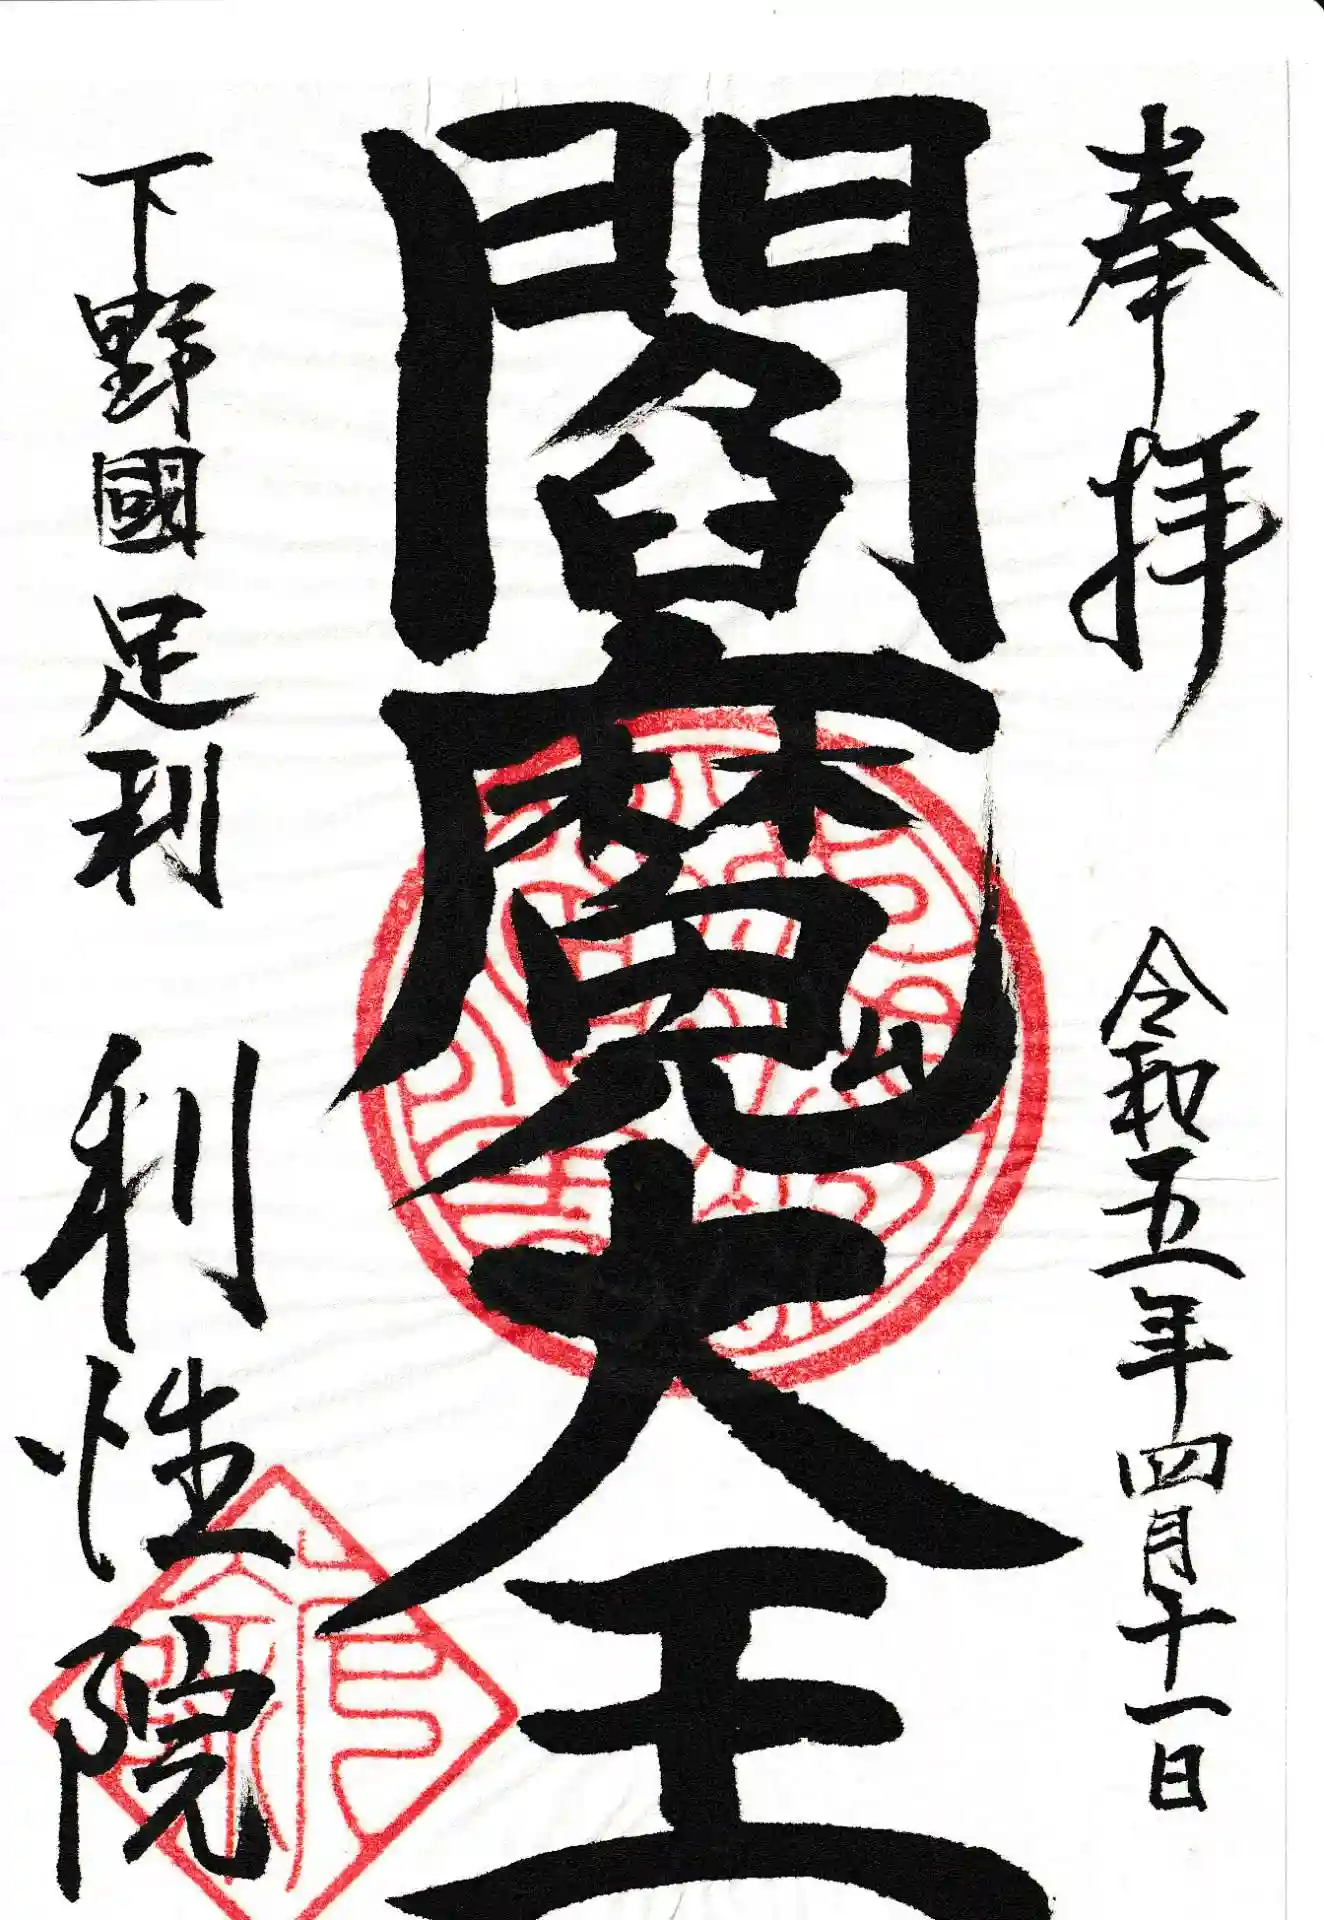 奉拝 令和五年四月十一日
閻魔大王
下野國足利 利性院